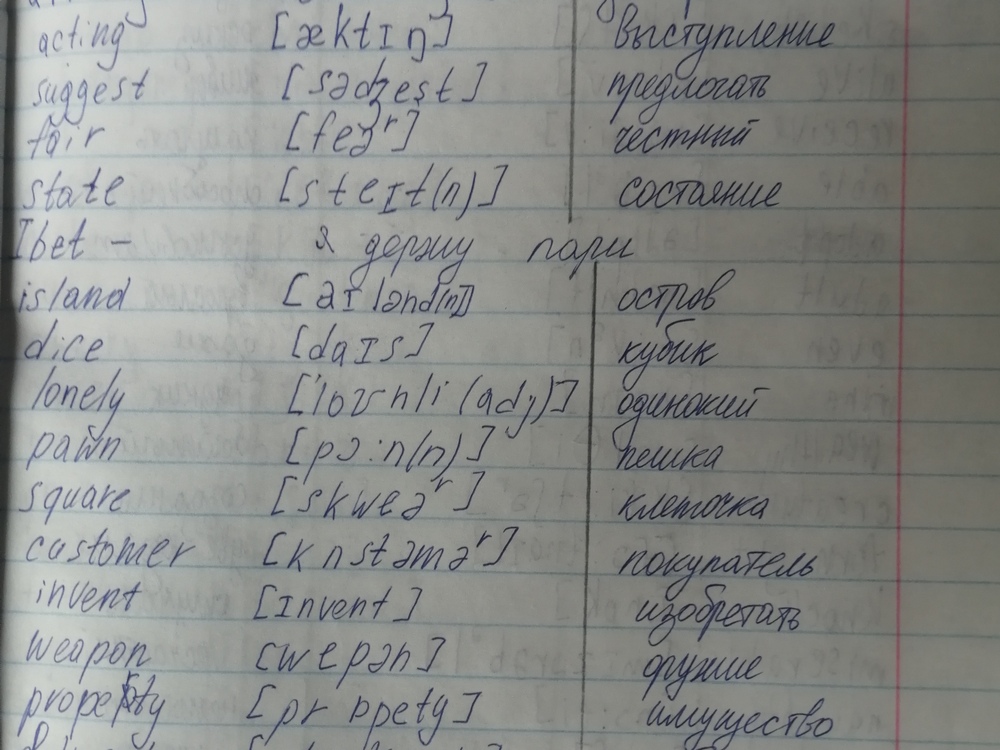 acting [æktɪŋ] выступление
suggest [sədʒest] предлогать
fair [feəʳ] честный
state [steɪt(n)] состояние
I bet – я держу пари
island [aɪlənd(n)] остров
dice [daɪs] кубик
lonely ['loʊnli (adj)] одинокий
pawn [pɔ:n(n)] пешка
square [skweəʳ] клеточка
customer [kʌstəməʳ] покупатель
invent [ɪnvent] изобретать
weapon [wepən] оружие
property [prɒpety] имущество